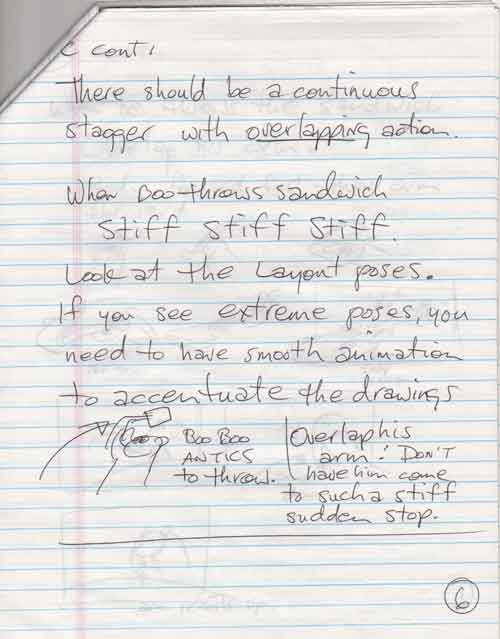 C cont,
There should be a continuous
stagger with overlapping action.
When Boo throws sandwich
Stiff Stiff Stiff.
Look at the Layout poses.
If you see extreme poses, you
need to have smooth animation
to accentuate the drawings
Boo Boo
ANTICS
to throw.
Overlap his
arm! DON'T
have him come
to such a stiff
sudden stop.
6